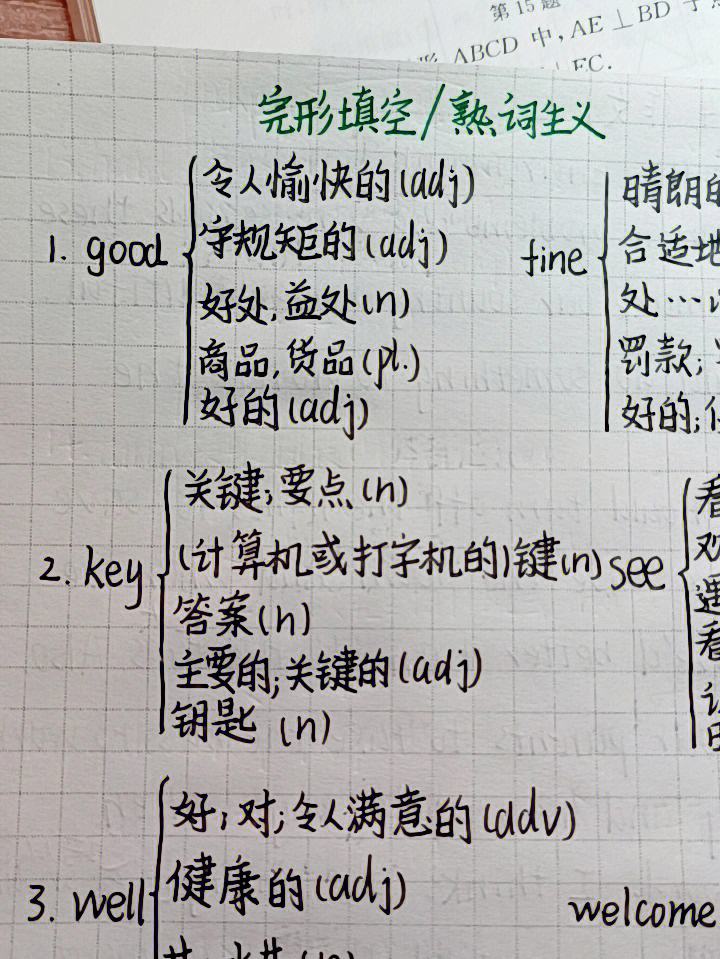 第15题
ABCD 中, AE ⊥ BD 于
EC.
完形填空/熟词生义
1. good
令人愉快的(adj)
守规矩的(adj)
好处,益处(n)
商品,货品(pl.)
好的(adj)
fine
晴朗的
合适地
处…
罚款;
好的;
2. key
关键;要点(n)
(计算机或打字机的)键(n)
答案(n)
主要的;关键的(adj)
钥匙 (n)
see
看
遇
看
3. well
好;对;令人满意的(adv)
健康的(adj)
welcome